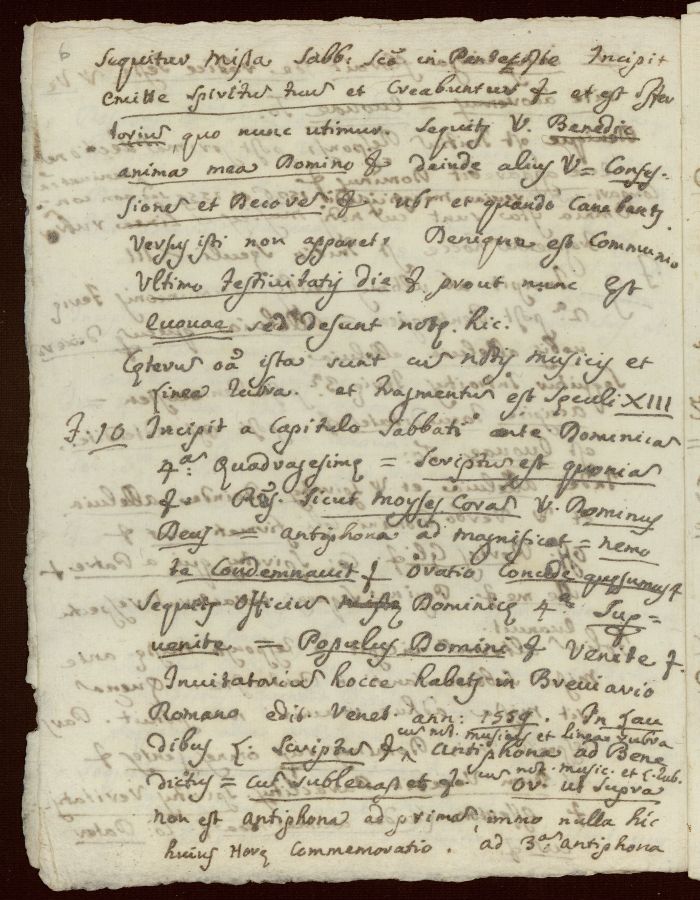 6
Sequitur Missa Sabb: Scõ in Pentecoste Incipit
emitte spiritus tuus et Creabuntur & et est offer
torius, quo nunc utimur. Sequitꝫ V. Benedic
anima mea Domino & deinde alius V = Confes-
siones et Decores & ubi et quando Canebantꝫ
Versus isti non apparet. Denique est Communio
Ultimo festivitatis die & prout nunc est
Euouae sed desunt notę hic.
Cęterus oã ista sunt cus notis musicis et
linea rubra. et fragmentus est Seculi XIII
F. 10 Incipit a Capitulo Sabbati ante Dominicas
4ᵃˢ Quadragesimę = Scriptus est quonias
& Rỹ. Sicut moyses Coras V. Dominus
Deus = antiphona ad magnificat = nemo
te Condemnavit & Oratio Concede quęsumus &
Sequitꝫ Officius Dominicę 4ᵃᵉ Sup=
uenite = Populus Domini & Venite &.
Invitatorius hocce habetꝫ in Breviario
Romano edit. Venet. ann: 1559. In Lau
cus not. musicis et linea rubra
dibus C. Scriptus & antiphona ad Bene
dictus = cus sublevas et &. cus not. music. et l. rub. Or. ut supra
non est antiphona ad primas immo nulla hic
huius Horę Commemoratio. ad 3ᵃˢ antiphona